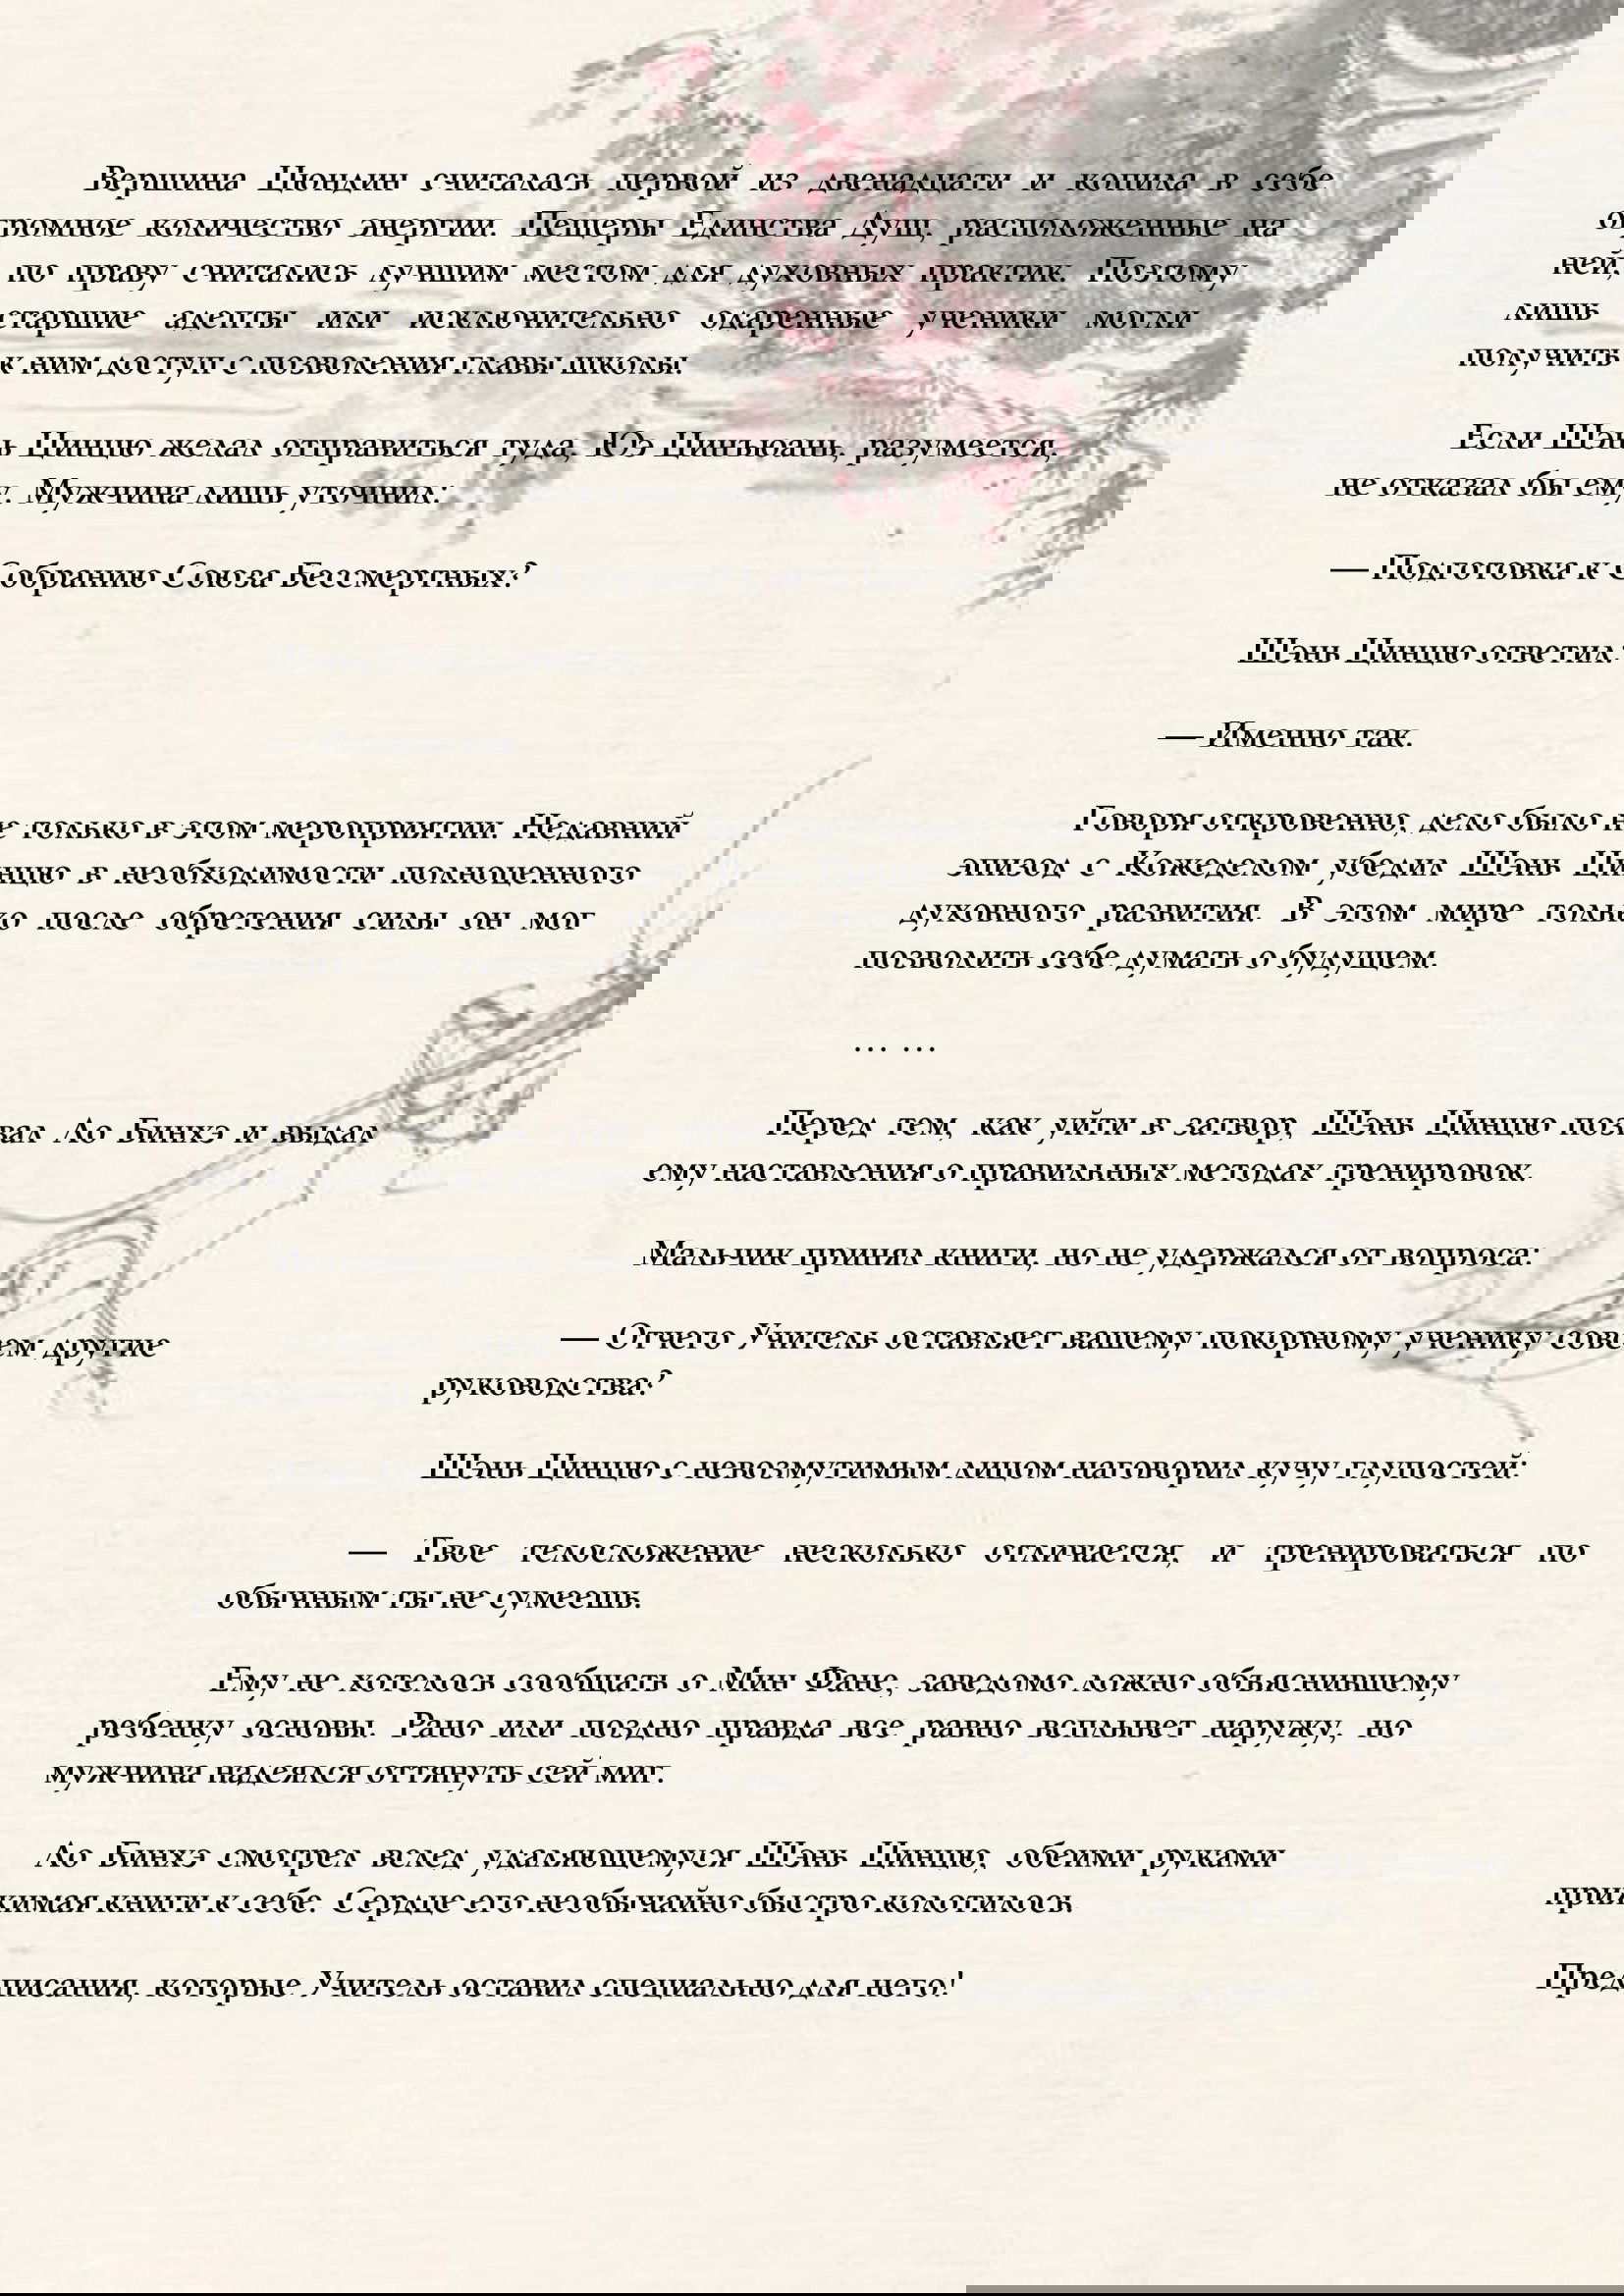 Вершина Цюндин считалась первой из двенадцати и копила в себе
огромное количество энергии. Пещеры Единства Душ, расположенные на
ней, по праву считались лучшим местом для духовных практик. Поэтому
лишь старшие адепты или исключительно одаренные ученики могли
получить к ним доступ с позволения главы школы.
Если Шэнь Цинцю желал отправиться туда, Юэ Цинъюань, разумеется,
не отказал бы ему. Мужчина лишь уточнил:
— Подготовка к Собранию Союза Бессмертных?
Шэнь Цинцю ответил:
— Именно так.
Говоря откровенно, дело было не только в этом мероприятии. Недавний
эпизод с Кожеделом убедил Шэнь Цинцю в необходимости полноценного
духовного развития. В этом мире только после обретения силы он мог
позволить себе думать о будущем.
... ...
Перед тем, как уйти в затвор, Шэнь Цинцю позвал Ло Бинхэ и выдал
ему наставления о правильных методах тренировок.
Мальчик принял книги, но не удержался от вопроса:
— Отчего Учитель оставляет вашему покорному ученику совсем другие
руководства?
Шэнь Цинцю с невозмутимым лицом наговорил кучу глупостей:
— Твое телосложение несколько отличается, и тренироваться по
обычным ты не сумеешь.
Ему не хотелось сообщать о Мин Фане, заведомо ложно объяснившему
ребёнку основы. Рано или поздно правда все равно всплывет наружу, но
мужчина надеялся оттянуть сей миг.
Ло Бинхэ смотрел вслед удаляющемуся Шэнь Цинцю, обеими руками
прижимая книги к себе. Сердце его необычайно быстро колотилось.
Предписания, которые Учитель оставил специально для него!